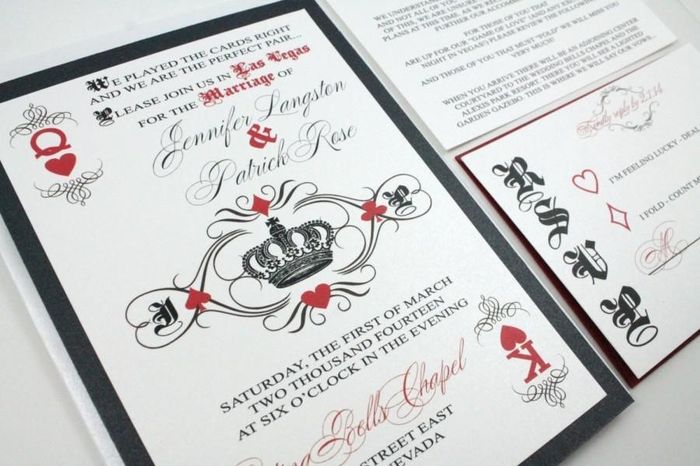 We played the cards right
and we are the perfect pair...
Please join us in Las Vegas
for the Marriage of
Jennifer Langston
&
Patrick Rose
Q
J
P
Saturday, the first of March
two thousand fourteen
at six o'clock in the evening
Bells Chapel
Street East
Nevada
K
we understand
and not all of you
of this, we are unsure
plans at this time.
further our accommo
For those of you that
are up for our "Game of Love" (and any
night in Vegas!) please review the following
And those of you that must "fold" we will miss you
very much!
When you arrive there will be an adjoining center
courtyard to the wedding bells chapel and the
Alexis Park Resort there you will see a white
garden gazebo. This is where we will say our vows.
Kindly reply by 2.1.14
RSVP
I'm feeling lucky - deal
I fold - count me
M